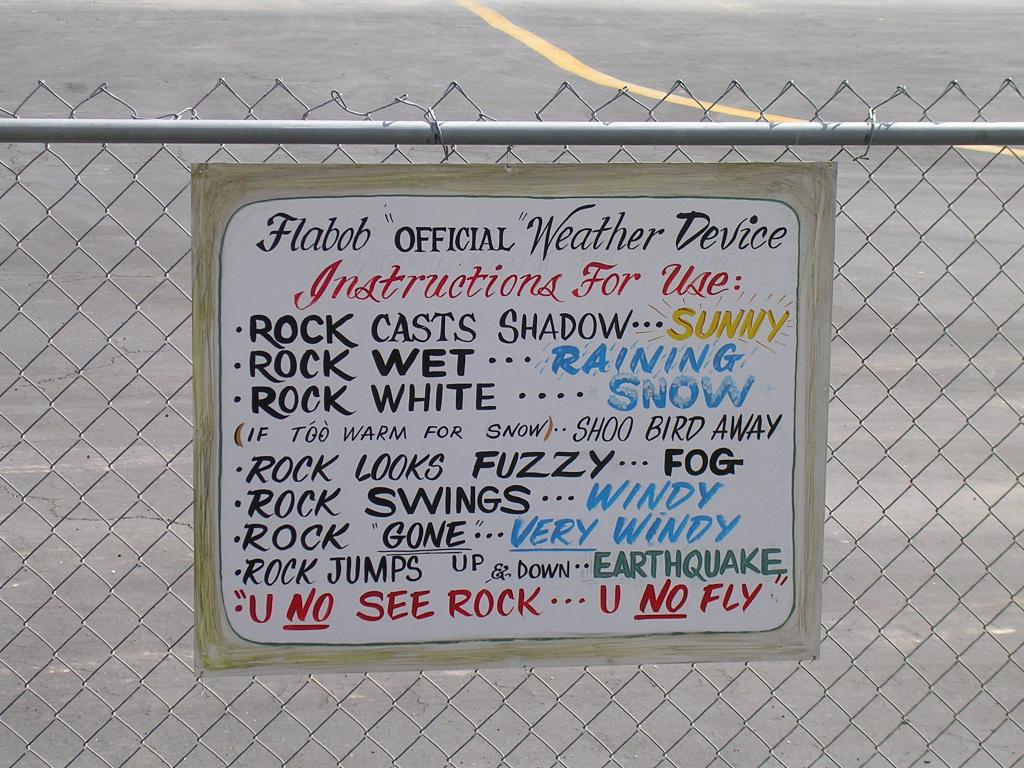 Flabob "OFFICIAL" Weather Device
Instructions For Use:
·ROCK CASTS SHADOW... SUNNY
·ROCK WET .... RAINING
·ROCK WHITE .... SNOW
(IF TOO WARM FOR SNOW).. SHOO BIRD AWAY
·ROCK LOOKS FUZZY... FOG
·ROCK SWINGS ... WINDY
·ROCK "GONE"... VERY WINDY
·ROCK JUMPS UP & DOWN.. EARTHQUAKE
"U NO SEE ROCK ... U NO FLY"